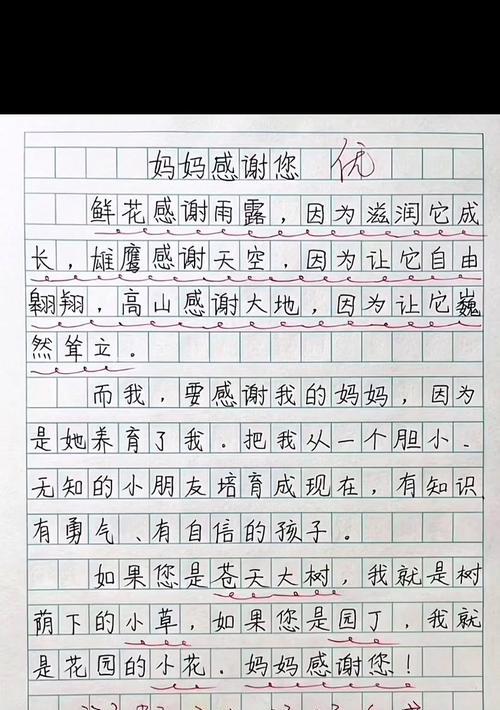 妈妈感谢您 优
鲜花感谢雨露，因为滋润它成
长，雄鹰感谢天空，因为让它自由
翱翔，高山感谢大地，因为让它巍
然耸立。
而我，要感谢我的妈妈，因为
是她养育了我．把我从一个胆小、
无知的小朋友培育成现在，有知识
有勇气、有自信的孩子。
如果您是苍天大树，我就是树
荫下的小草，如果您是园丁，我就
是花园的小花．妈妈感谢您！